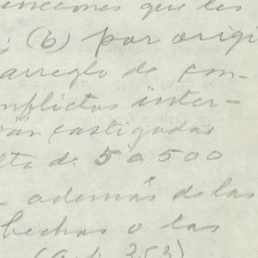 que les
; (b) por origi
arreglo de con-
nflictos inter-
rán castigadas
lta de 5 a 500
- además de las
hechas o las
(Art. 353)